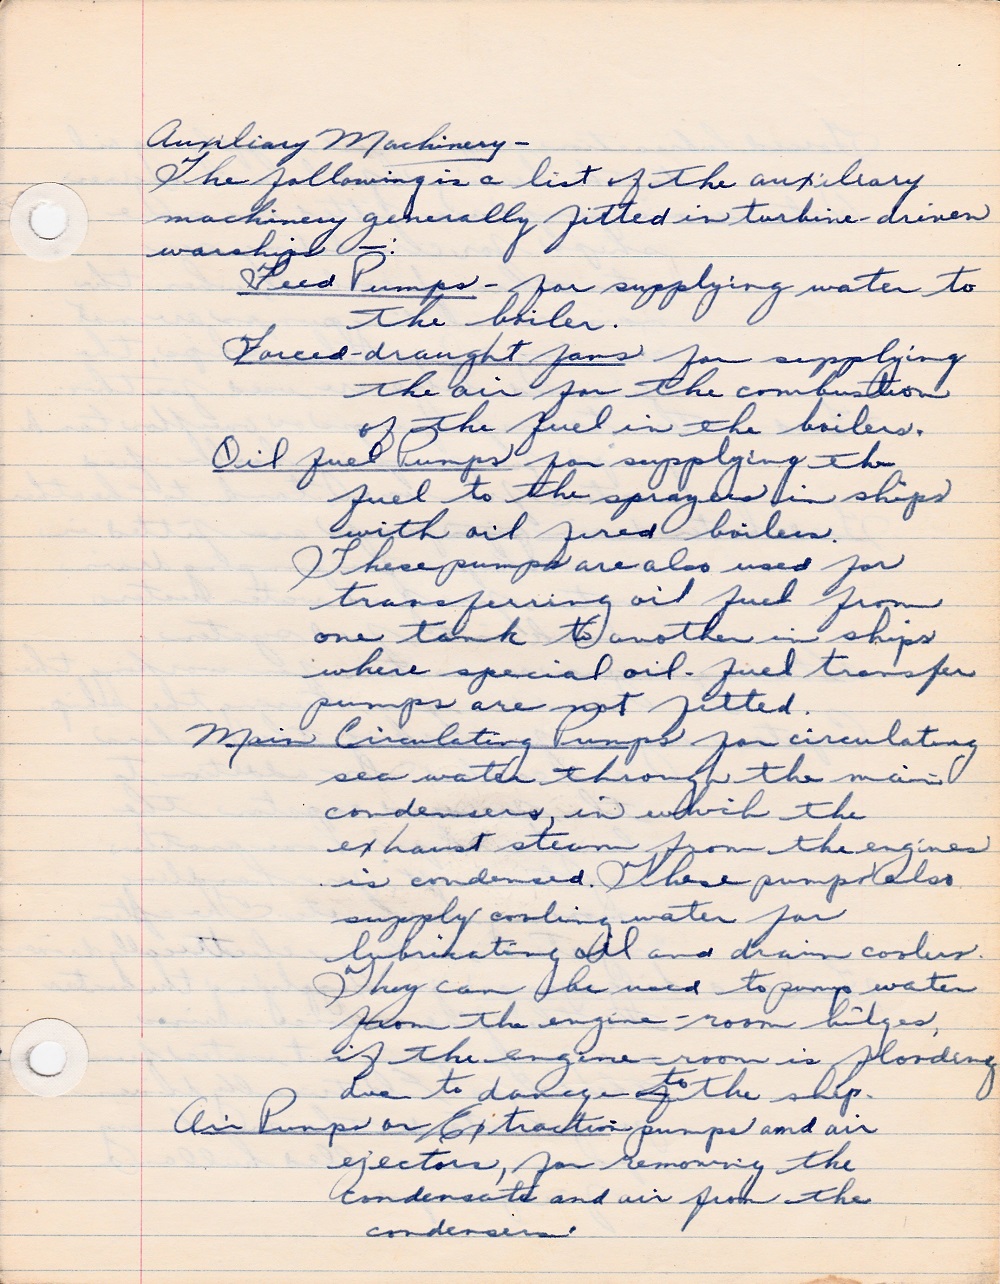 Auxiliary Machinery -
The following is a list of the auxiliary
machinery generally fitted in turbine-driven
warships -:
Feed Pumps - for supplying water to
the boiler.
Forced-draught fans for supplying
the air for the combustion
of the fuel in the boilers.
Oil fuel Pumps for supplying the
fuel to the sprayers in ships
with oil fired boilers.
These pumps are also used for
transferring oil fuel from
one tank to another in ships
where special oil-fuel transfer
pumps are not fitted.
Main Circulating Pumps for circulating
sea water through the main
condensers, in which the
exhaust steam from the engines
is condensed. These pumps also
supply cooling water for
lubrikating oil and drain coolers.
They can be used to pump water
from the engine-room bidges,
if the engine-room is flooding
due to damage to the ship.
Air Pumps or Extraction pumps and air
ejectors, for removing the
condensate and air from the
condensers.